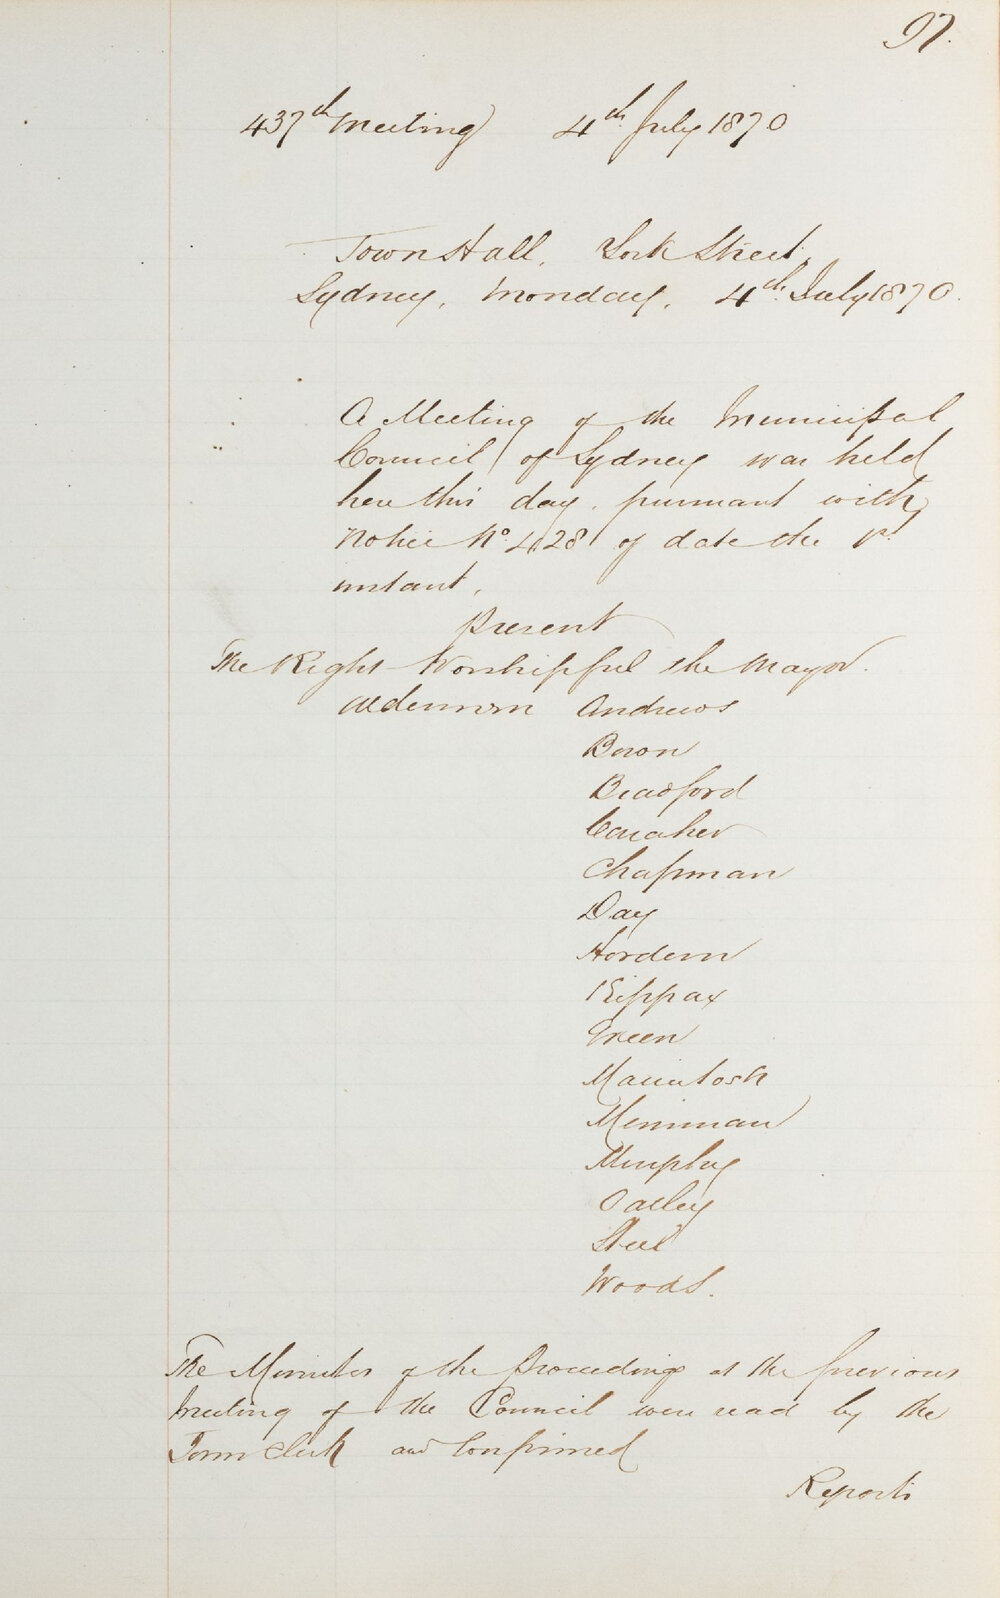 97.
437th Meeting 4th July 1870
Town Hall, York Street,
Sydney, Monday, 4th July 1870.
A Meeting of the Municipal
Council of Sydney was held
here this day, pursuant with
Notice No. 428 of date the 1st
instant.
Present
The Right Worshipful the Mayor.
Aldermen Andrews
Bown
Bradford
Caraher
Chapman
Day
Hordern
Kippax
Green
Macintosh
Merriman
Murphy
Oatley
Steel
Woods.
The Minutes of the Proceedings at the previous
Meeting of the Council were read by the
Town Clerk and Confirmed
Reports